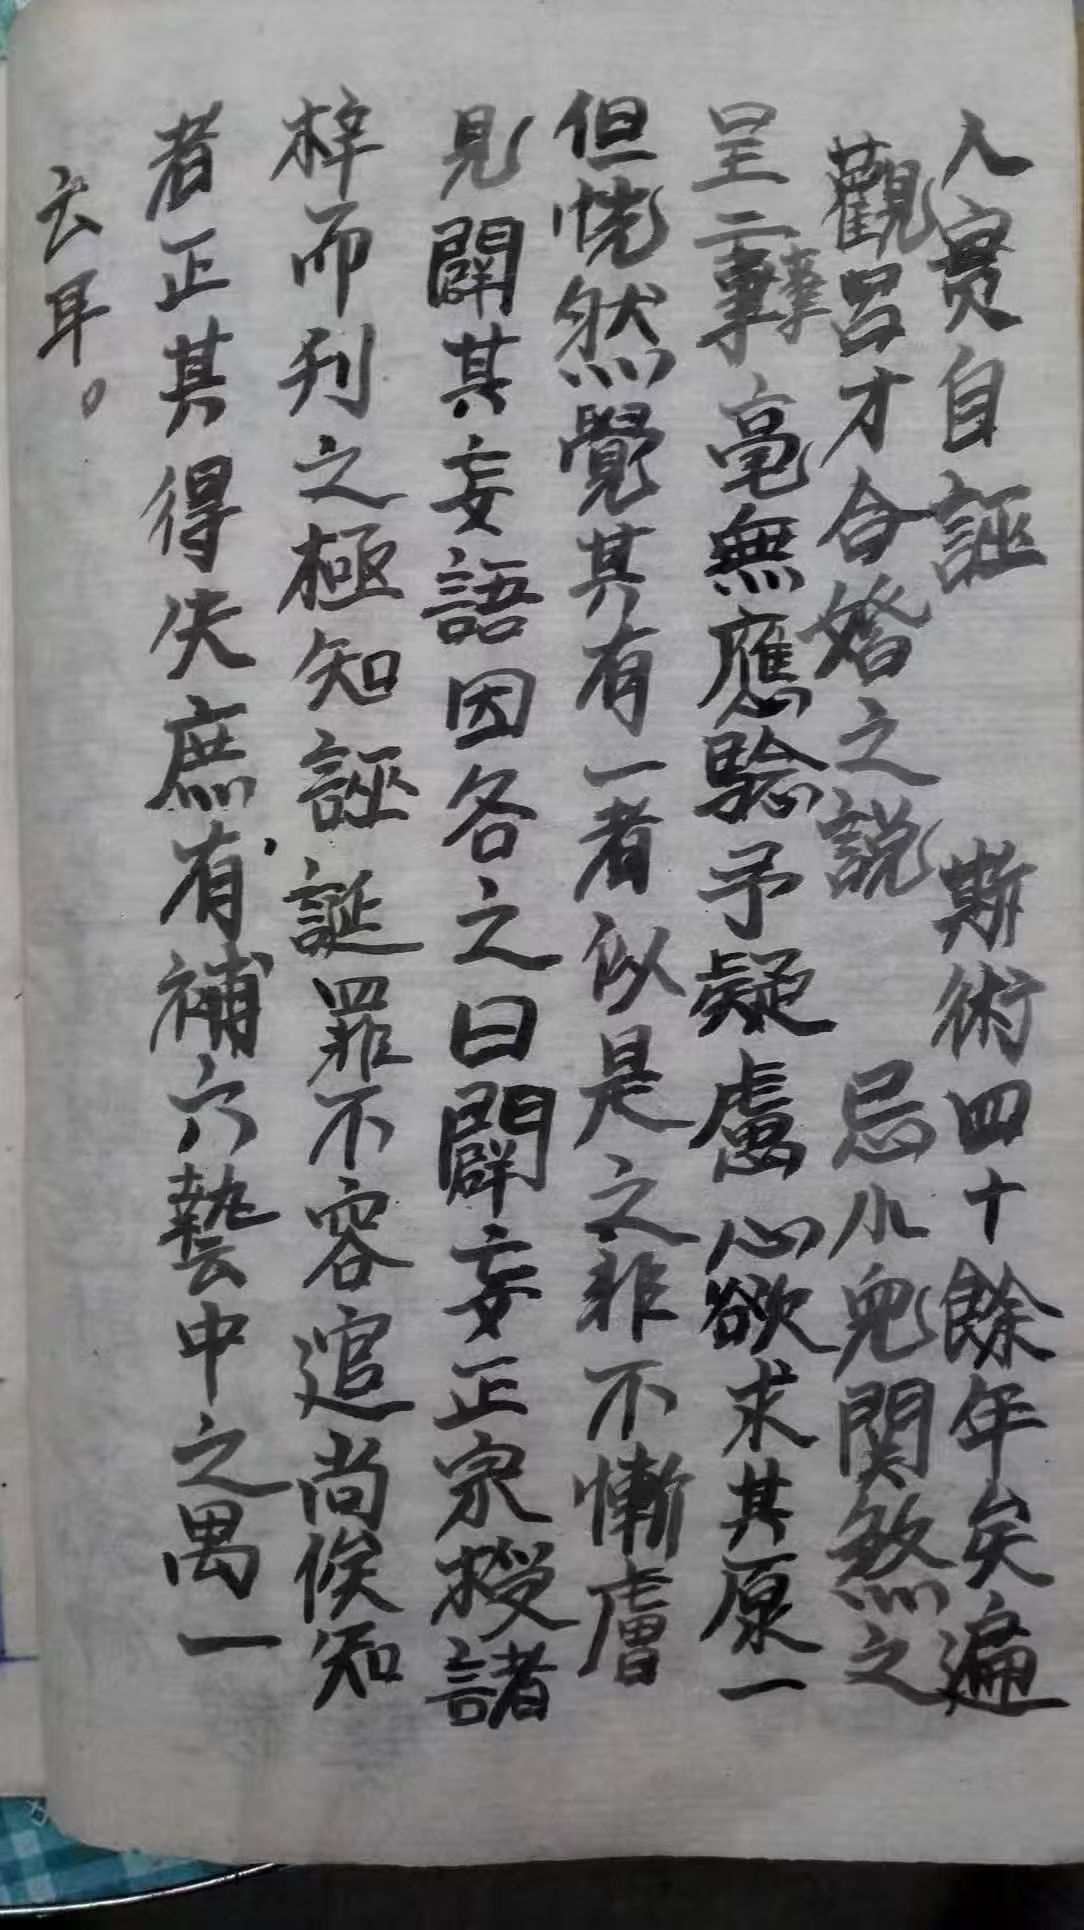 人實自誣 斯術四十餘年矣遍
觀呂才合婚之說 忌小兒関煞之
呈二事毫無應驗予疑慮心欲求其原一
但恍然覺其有一者似是之非不慚膚
見闢其妄語因各之曰闢妄正宗授諸
梓而刋之極知誣誕罪不容逭尚俟知
者正其得失庶有補六藝中之禺一
云耳。